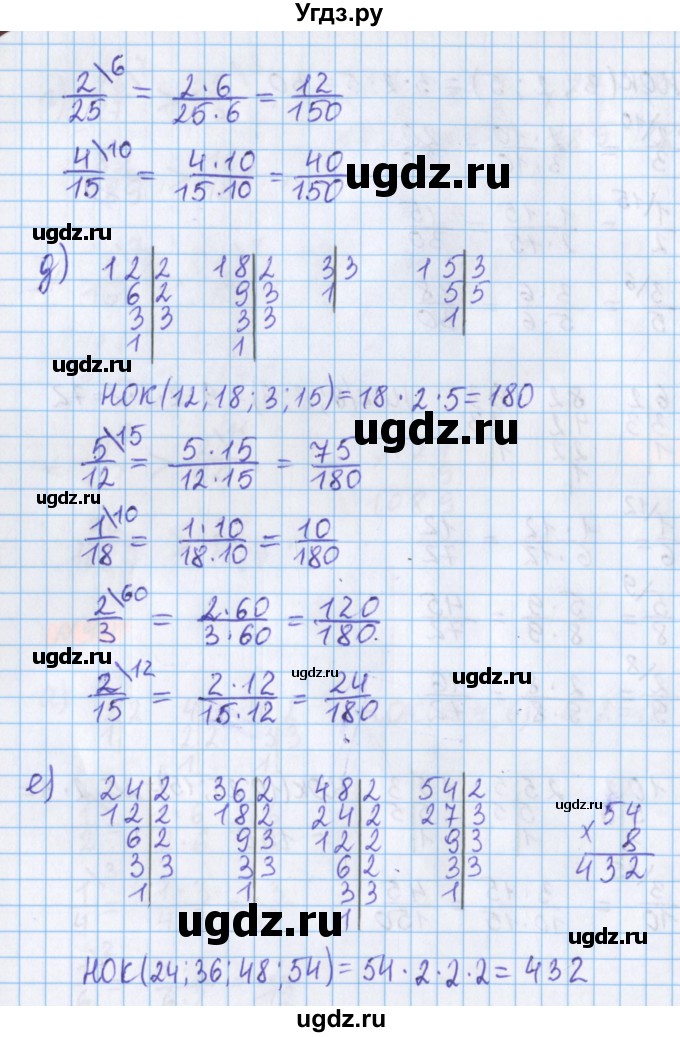 Угдз.ру
2\6/25 = 2·6/25·6 = 12/150
4\10/15 = 4·10/15·10 = 40/150
ugdz.ru
ugdz.ru
д) 12|2 18|2 3|3 15|3
6|2 9|3 1| 5|5
3|3 3|3 1|
1| 1|
ugdz.ru
НОК(12; 18; 3; 15) = 18·2·5 = 180
ugdz.ru
5\15/12 = 5·15/12·15 = 75/180
ugdz.ru
1\10/18 = 1·10/18·10 = 10/180
2\60/3 = 2·60/3·60 = 120/180.
ugdz.ru
ugdz.ru
ugdz.ru
2\12/15 = 2·12/15·12 = 24/180
е) 24|2 36|2 48|2 54|2
12|2 18|2 24|2 27|3 ×54
6|2 9|3 12|2 9|3 8
3|3 3|3 6|2 3|3 432
1| 1| 3|3 1|
1|
ugdz.ru
ugdz.ru
ugdz.ru
НОК(24; 36; 48; 54) = 54·2·2·2 = 432
ugdz.ru